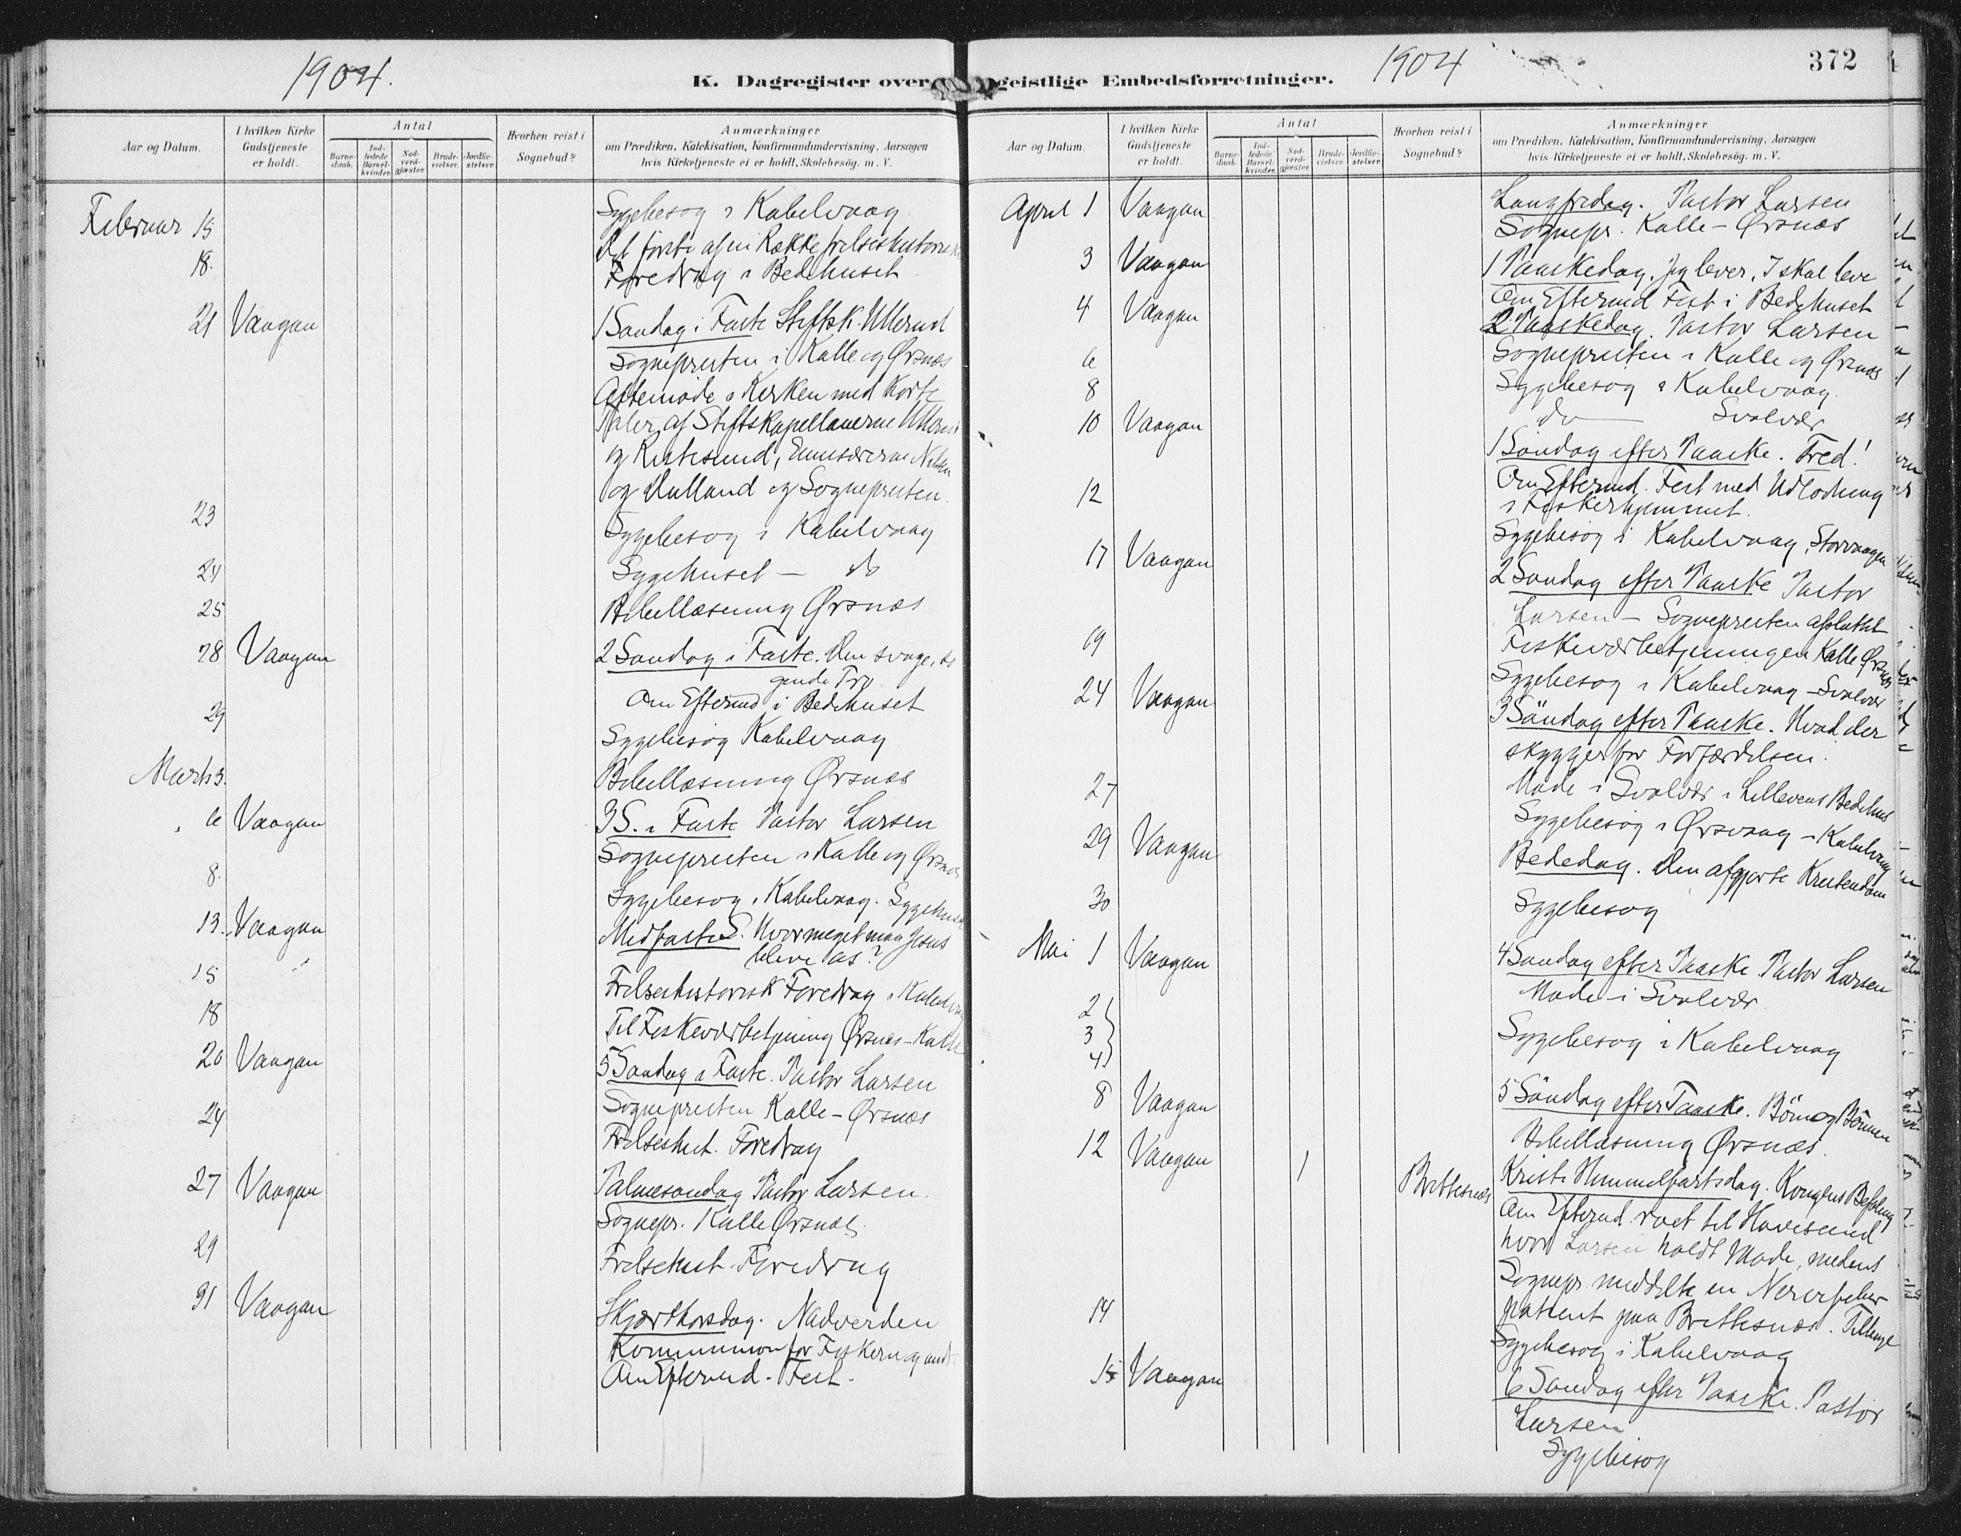 1904.
K. Dagregister over
Aar og Datum.
I hvilken Kirke Gudstjeneste er holdt.
Antal
Barnedaab.
Indledede Barselkvinder.
Nadverdgjester.
Brudevielser.
Jordfæstelser.
Hvorhen reist i Sognebud?
Anmærkninger
om Prædiken, Katekisation, Konfirmandundervisning, Aarsagen
hvis Kirketjeneste ei er holdt, Skolebesøg, m. V.
Februar 15 Sygebesøg i Kabelvaag
18. Det første af en Række frelseshistoriske
Foredrag i Bedehuset
21 Vaagan 1 Søndag i Faste Stiftsk. Ullerud
Sognepresten i Kalle og Ørsnæs
Aftenmøde i Kirken med korte
Taler af Stiftskapellanerne
og
og Sognepresten.
23 Sygebesøg i Kabelvaag
24 Sygehuset — do
25 Bibellæsning Ørsnæs
28 Vaagan 2 Søndag i Faste. Den svage,
gende Tro
Om Eftermd i Bedehuset
29 Sygebesøg Kabelvaag
Marts 3. Bibellæsning Ørsnæs
6 Vaagan 3 S. i Faste Pastor Larsen
Sognepresten i Kalle og Ørsnæs
8. Sygebesøg i Kabelvaag. Sygehuset
13. Vaagan Midfaste S. Hvormeget maa Jesus
blive os?
15 Frelseshistorisk Foredrag i Kabelvaag
18 Til Fiskeværbetjening Ørsnæs-Kalle
20 Vaagan 5 Søndag i Faste. Pastor Larsen
Sognepresten Kalle-Ørsnæs
24 Frelseshist. Foredrag
27 Vaagan Palmesøndag Pastor Larsen.
Sognepr. Kalle Ørsnæs.
29 Frelseshist. Foredrag
31 Vaagan Skjærthorsdag. Nadverden
Kommunion for Fiskern og andre
Om Eftermd. Fest.
1904
372
geistlige Embedsforretninger.
Aar og Datum.
I hvilken Kirke Gudstjeneste er holdt.
Antal
Barnedaab.
Indledede Barselkvinder.
Nadverdgjester.
Brudevielser.
Jordfæstelser.
Hvorhen reist i Sognebud?
Anmærkninger
om Prædiken, Katekisation, Konfirmandundervisning, Aarsagen
hvis Kirketjeneste ei er holdt, Skolebesøg, m. V.
April 1 Vaagan Langfredag. Pastor Larsen
Sognepr. Kalle-Ørsnæs
3 Vaagan 1 Paaskedag. Jeg lever, I skal leve
Om Eftermd Fest i Bedehuset
4 Vaagan 2 Paaskedag. Pastor Larsen
Sognepresten i Kalle og Ørsnæs
6 Sygebesøg i Kabelvaag.
8 do Svolvær
10 Vaagan 1 Søndag efter Paaske. Fred!
Om Eftermd. Fest med Udlodning
i Fiskerhjemmet.
12 Sygebesøg i Kabelvaag, Storvaagen
17 Vaagan 2 Søndag efter Paaske Pastor
Larsen — Sognepresten afsluttet
Fiskeværbetjeningen Kalle Ørsnæs
19 Sygebesøg i Kabelvaag-Svolvær
24 Vaagan 3 Søndag efter Paaske. Hvad der
skygger for Forfærdelsen.
Møde i Svolvær i Bedehus
27 Sygebesøg i Ørsvaag-Kabelvaag
29 Vaagan Bededag. Den afgjorte Kristendom
30 Sygebesøg
Mai 1 Vaagan 4 Søndag efter Paaske Pastor Larsen
Møde i Svolvær.
2
3
4 Sygebesøg i Kabelvaag
8 Vaagan 5 Søndag efter Paaske. Bønnen
Bibellæsning Ørsnæs
12 Vaagan 1 Brettesnæs Kristi Himmelfartsdag. Kongens Befaling
Om Eftermd. roet til
hvor Larsen holdt Møde, medens
Sognepr. meddelte en Nervefeber
patient paa Brettesnæs.
14 Sygebesøg i Kabelvaag
15 Vaagan 6 Søndag efter Paaske. Pastor
Larsen
Sygebesøg